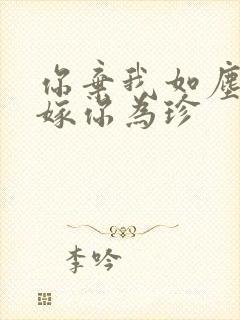 你弃我如塵
嫁你为珍
李吟